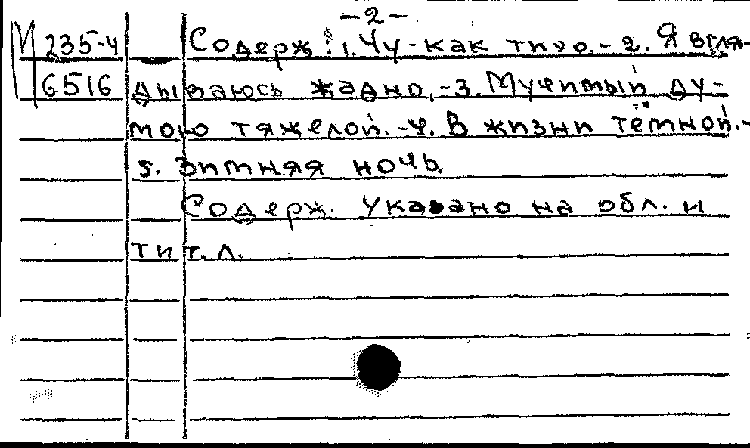 -2-
М 235-4 Содерж: 1. Чу-как тихо.- 2. Я вгля-
6516 дываюсь жадно.-3. Мучимый ду-
мою тяжелой.-4. В жизни тёмной.-
5. Зимняя ночь.
Содерж. указано на обл. и
тит. л.